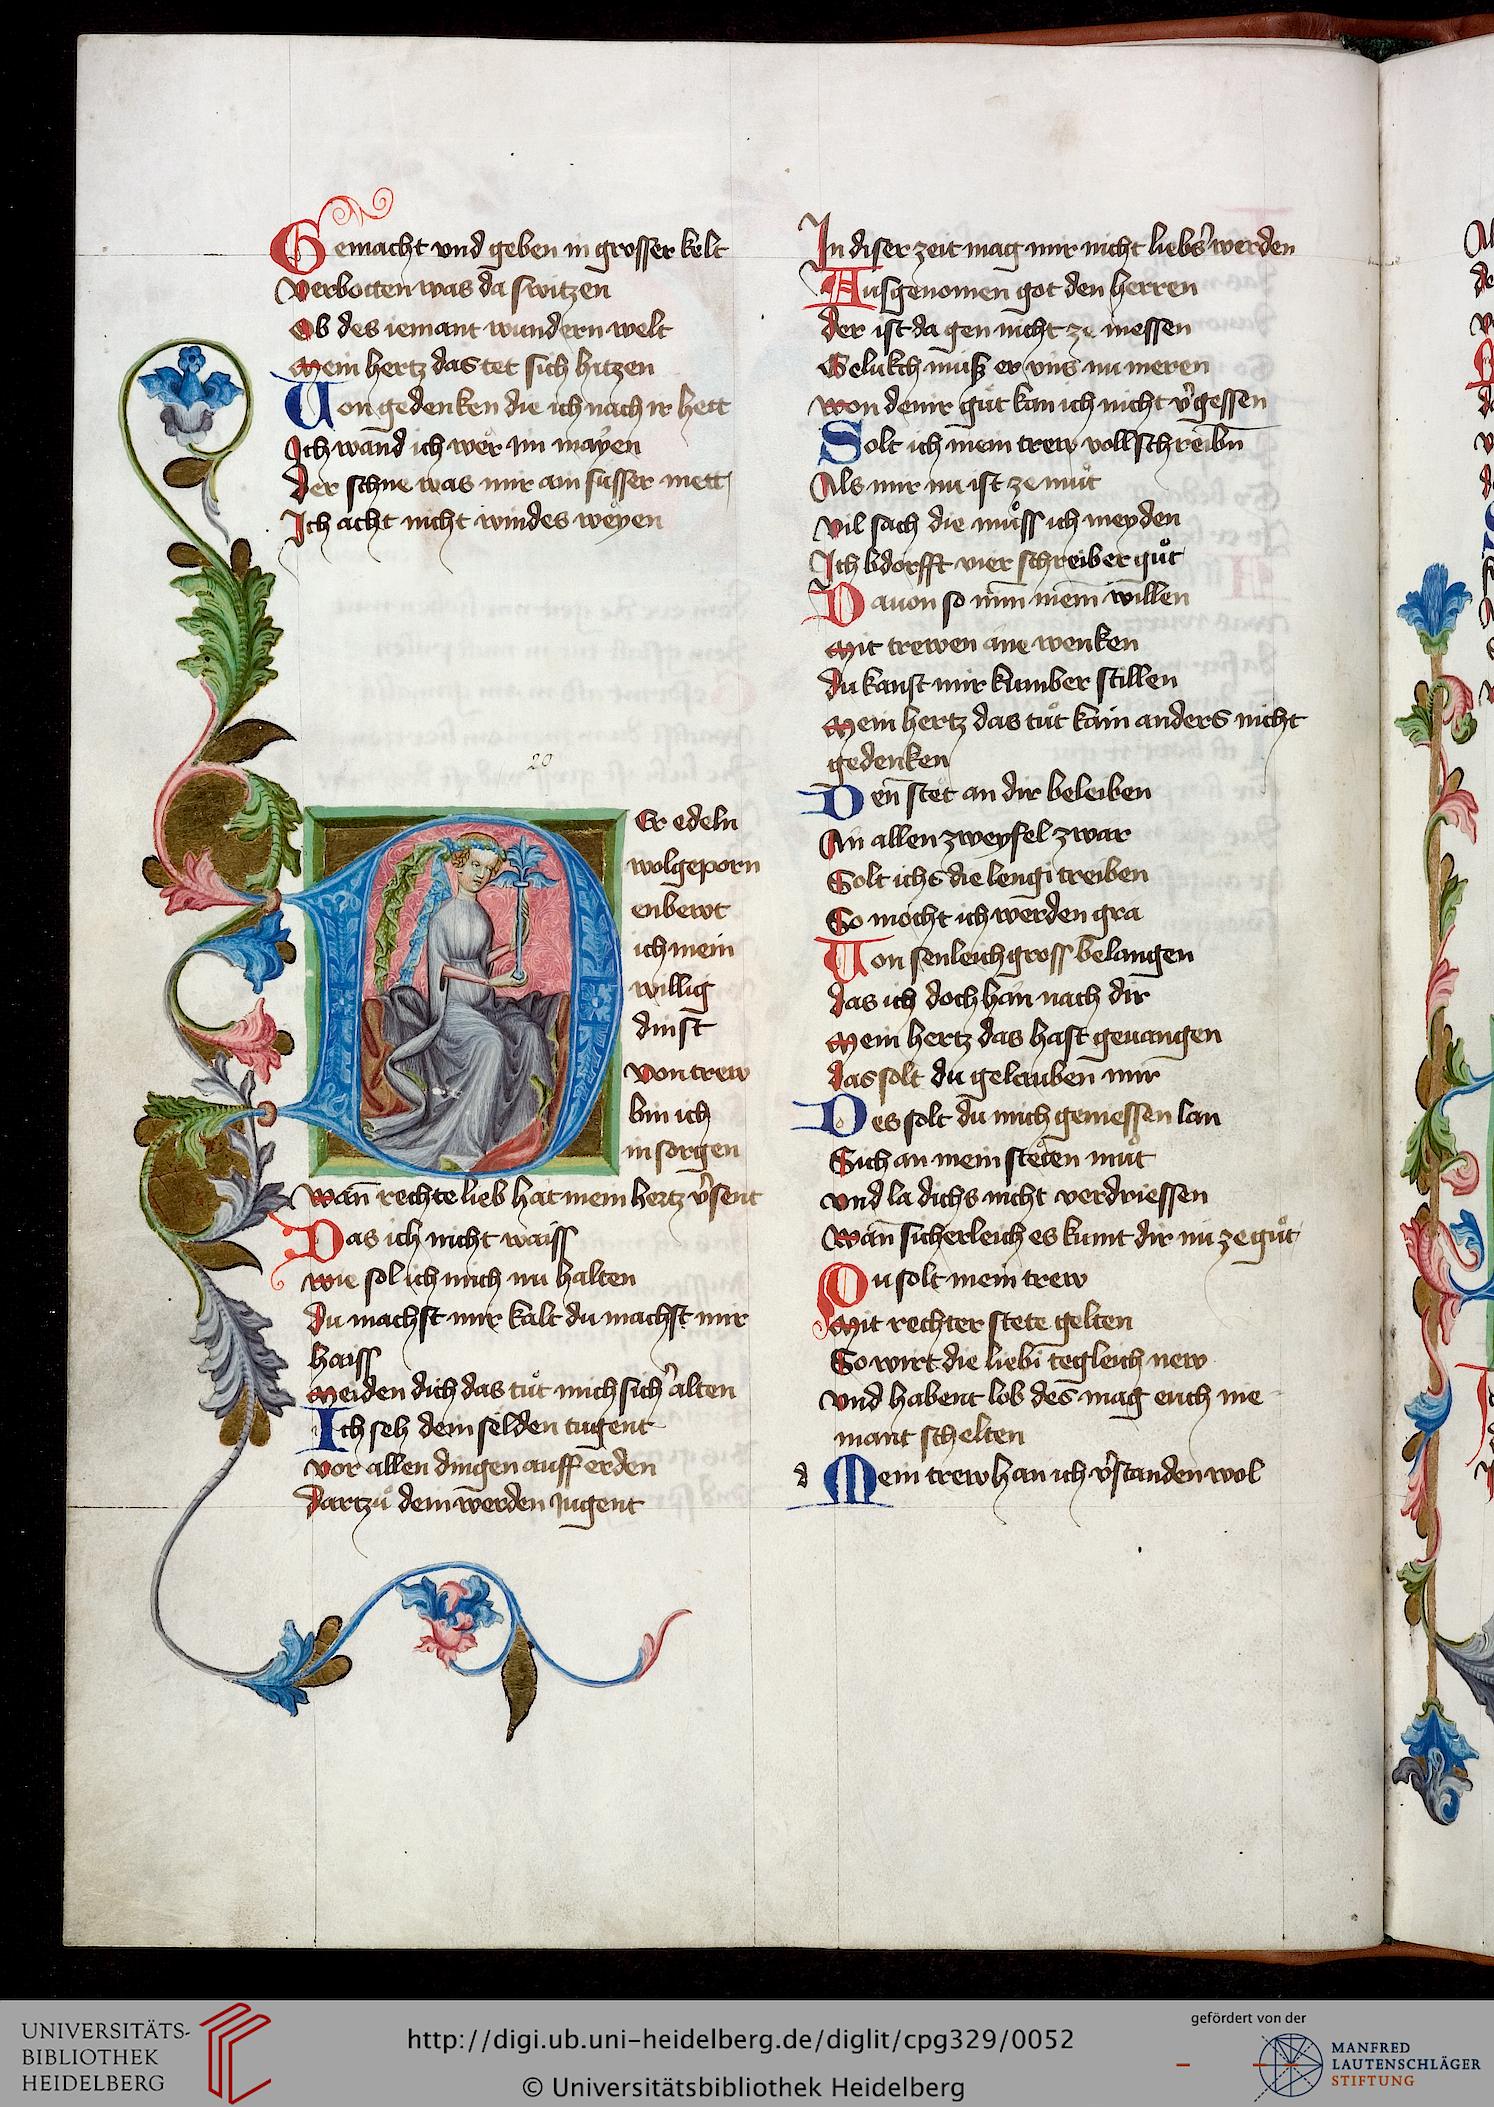 Gemacht vnd geben in grosser kelt
Verbotten was da switzen
Ob des iemant wundern welt
Mein hertz das tet sich hitzen
Von gedenken die ich nach ir hett
Ich wand ich wër im mayen
Der schne was mir ain süsser mett
Ich acht nicht windes wëyen
20
Er edeln
wolgeporn
enbewt
ich mein
willig
dinst
Von trew
bin ich
in sorgen
Wan̄ rechte lieb hat mein hertz v̉sent
Das ich nicht waiss
wie sol ich mich nu halten
Du machst mir kalt du machst mir
haiss
Meiden dich das tuͦt mich sich̉ alten
Ich seh dein selden tugent
vor allen dingen auff erden
dartzuͦ dein werden Jugent
In diser zeit mag mir nicht liebs̉ werden
Ausgenomen got den herren
der ist da gen nicht ze messen
Gelükch müsz er vns nu meren
Won der ir güt kan ich nicht v̉gessen
Solt ich mein trew vollschreibn̄
Als mir nu ist ze müt
vil sach die muͦss ich meyden
Ich bdorfft vier schreiber guͦt
Dauon so nim̄ mein willen
Mit trewen ane wenken
du kanst mir kumber stillen
Mein hertz das tuͦt kain anders nicht
gedenken
Den̄ stët an dir beleiben
An allen zweyfel zwar
Solt ichs die lengi treiben
So mocht ich werden gra
Von senleich gross belangen
das ich doch han nach dir
Mein hertz das hast geuangen
das solt du gelauben mir
Des solt du mich geniessen lan
Sich an mein stëten muͦt
vnd la dichs nicht verdriessen
Wan̄ sicherleich es kumt dir nu ze guͦt
Du solt mein trew
Mit rechter stete gelten
So wirt die liebi tegleich new
vnd habent lob des mag euch nie
mant schelten
d Mein trew han ich v̉standen wol
UNIVERSITÄTS-
BIBLIOTHEK
HEIDELBERG
http://digi.ub.uni-heidelberg.de/diglit/cpg329/0052
© Universitätsbibliothek Heidelberg
gefördert von der
MANFRED
LAUTENSCHLÄGER
STIFTUNG